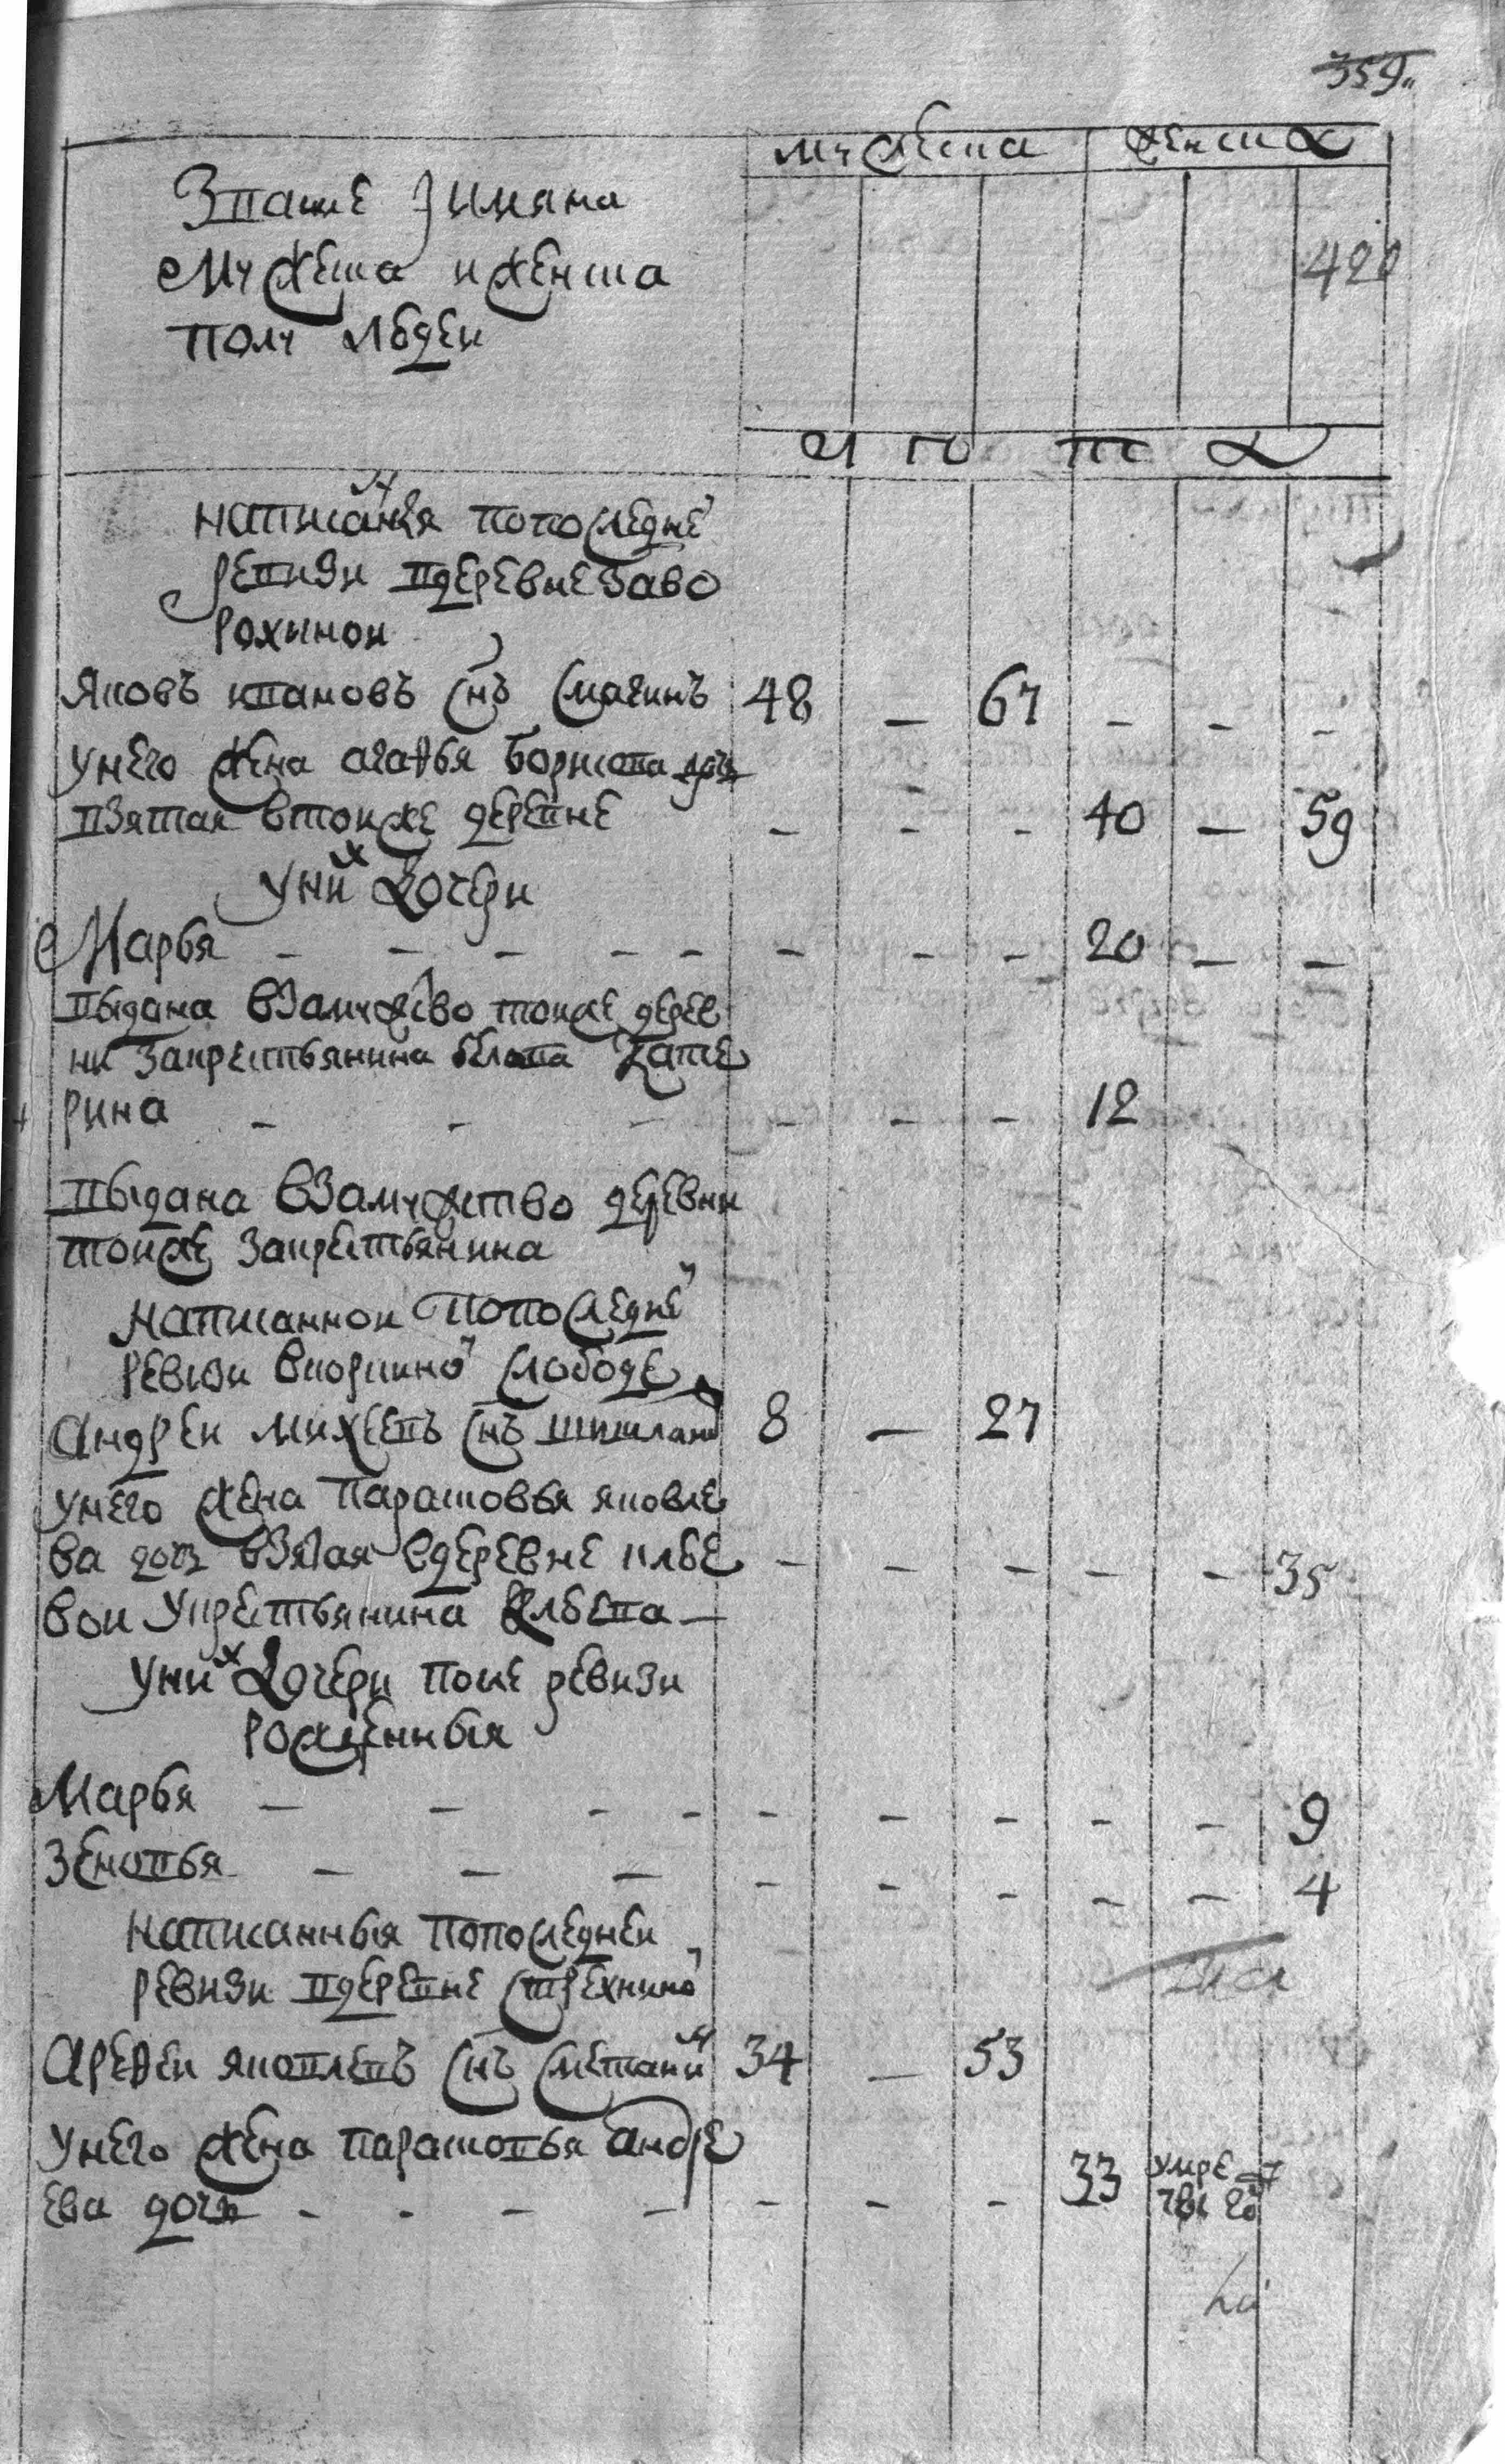 359
мужеска женска
Звание і имяна
мужеска и женска
полу людеи
420
ч го т а
написанъныя попоследнеи
ревизи вдеревне заво
рохинои
Яковъ ивановъ снъ смагинъ 48 — 67 - - -
унего жена агафья борисова дочь
взятая втоиже деревне - - - 40 — 59
уних дочери
Марья - - - - - - - - 20 — —
выдана взамужство тоиже дерев
ни закрестьянина белова Кате
рина - - - - - - 12
выдана взамужство деревни
тоиже закрестьянина
написаннои попоследнеи
ревизи слободе
Андреи михеевъ снъ 8 — 27
унего жена парасковья яковле
ва дочь взятая вдеревне илье
вои укрестьянина - - - - - 35
уних дочери после ревизи
рожденныя
Марья — — - - - - - - - 9
Зеновья — — — - - - - - 4
написанныя попоследнеи
ревизи вдеревне стрехнинои
Арефеи яковлевъ снъ сметанин 34 — 53
унего жена парасковья андре
ева дочь - - - - - - - 33 умре в
7 году